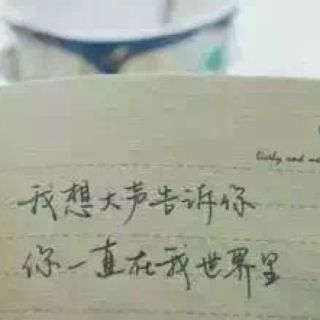 我想大声告诉你
你一直在我世界里